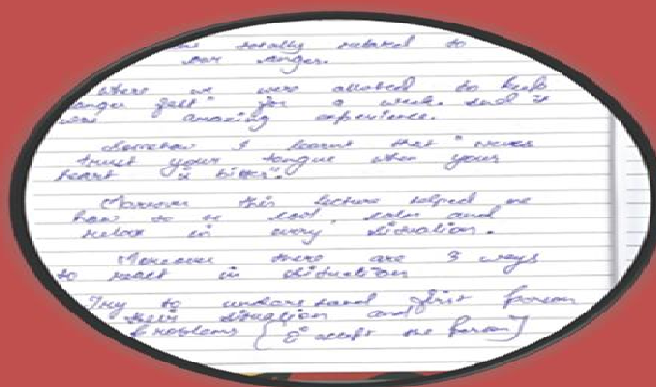 totally relaxed to
our anger.
where we were allowed to keep
anger for a week and it
was amazing experience.
Somehow I learnt that "never
trust your tongue when your
heart is bitter".
Moreover this lecture helped me
how to be cool, calm and
relax in every situation.
Moreover there are 3 ways
to react in situation
Try to understand first person
their situation and
problems { accept the person }